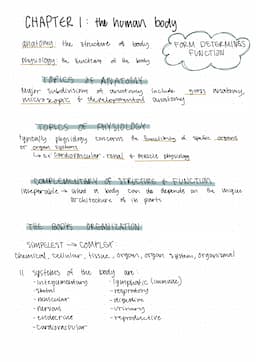 CHAPTER 1: the human body
anatomy: the structure of body
physiology: the function of the body
FORM DETERMINES
FUNCTION
TOPICS OF ANATOMY
Major subdivisions of anatomy include gross anatomy,
microscopic & developmental anatomy
TOPICS OF PHYSIOLOGY
typically physiology concerns the functioning of specific organs
or organ systems
↳ ex: cardiovascular, renal & muscle physiology
COMPLEMENTARY OF STRUCTURE & FUNCTION
inseperable → what a body can do depends on the unique
architecture of its parts
THE BODY ORGANIZATION
SIMPLEST → COMPLEX
chemical, cellular, tissue, organ, organ system, organismal
11 systems of the body are:
-integumentary
-skeletal
-muscular
-nervous
-endocrine
-cardiovascular
-lymphatic (immune)
-respiratory
-digestive
-urinary
-reproductive